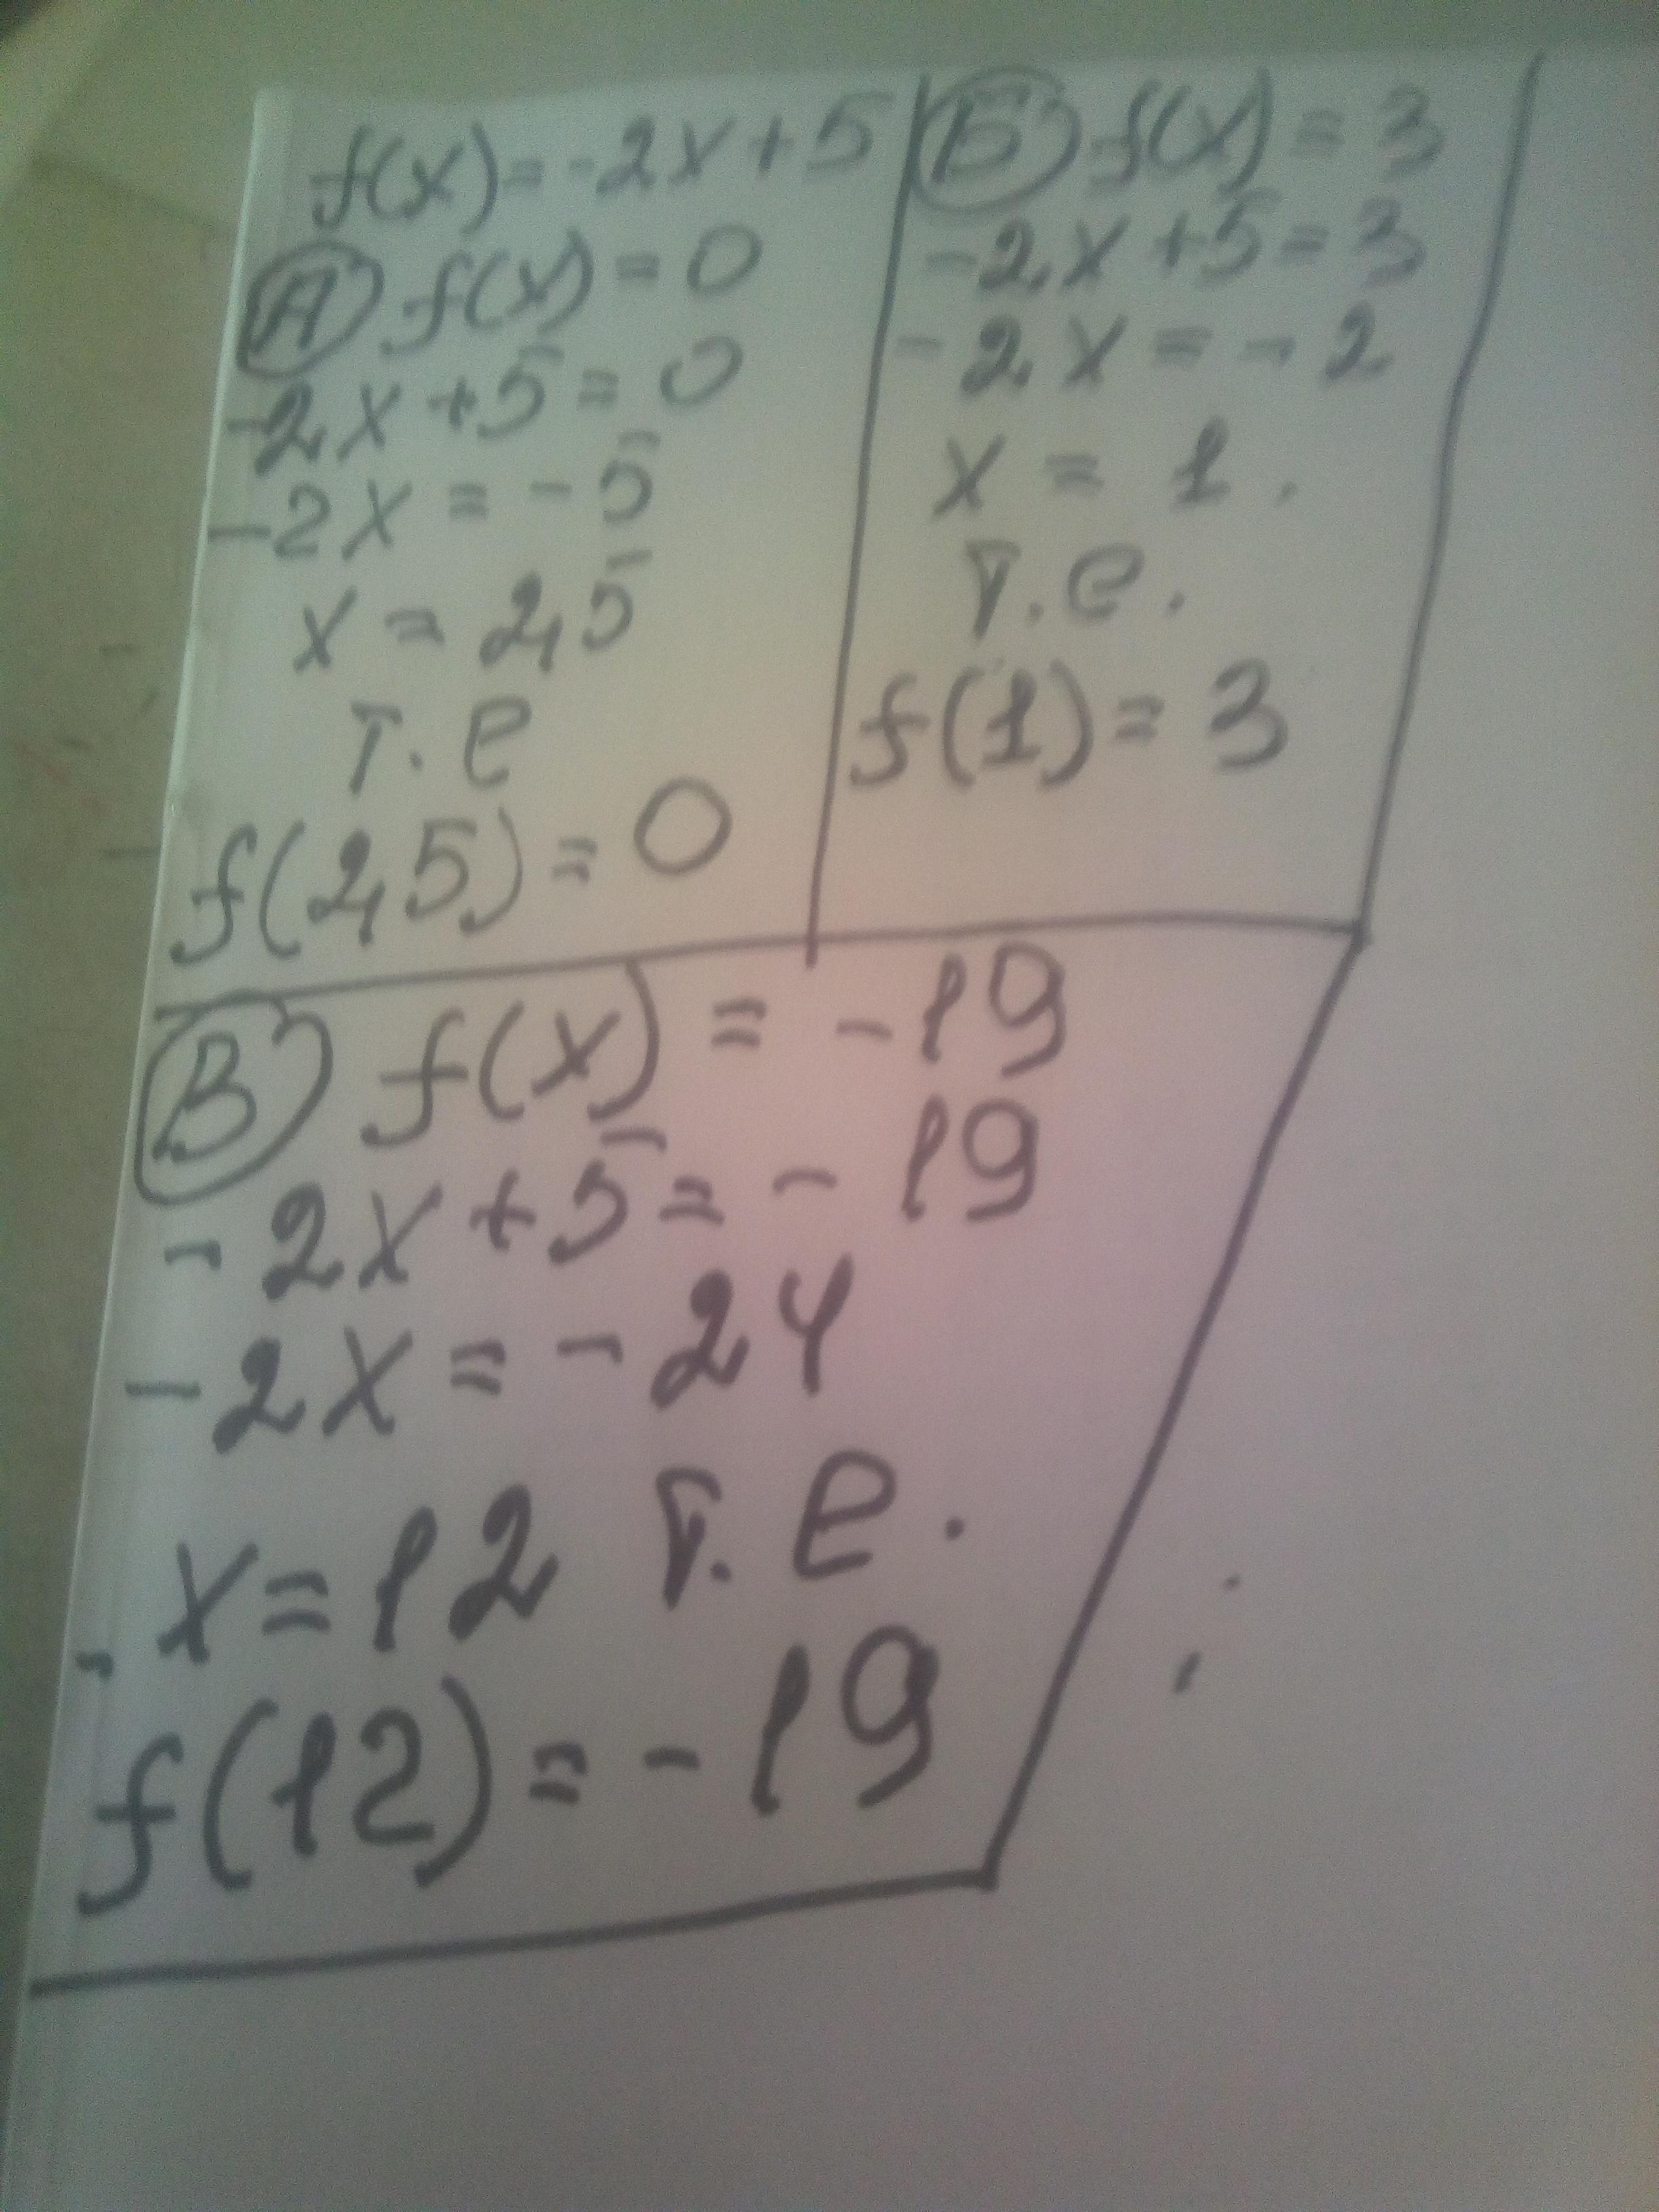 f(x)=-2x+5
А f(x)=0
-2x+5=0
-2x=-5
x=2,5
т.е
f(2,5)=0
Б f(x)=3
-2x+5=3
-2x=-2
x=1.
т.е.
f(1)=3
В f(x)=-19
-2x+5=-19
-2x=-24
x=12 т.е.
f(12)=-19